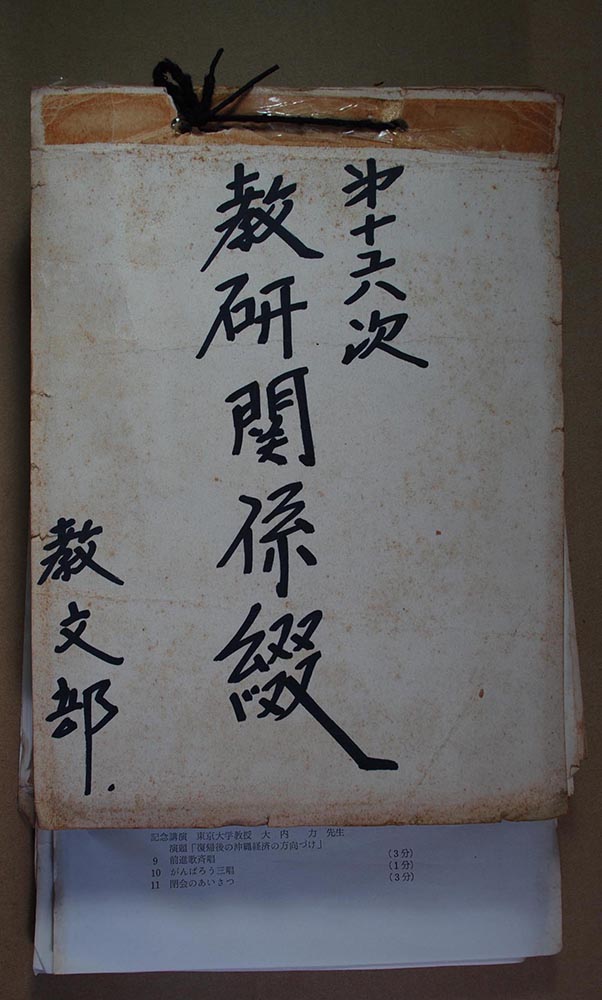 第十六次
教研関係綴
教文部.
記念講演 東京大学教授 大 内 力 先生
演題「復帰後の沖縄経済の方向づけ」
9 前進歌斉唱 (3分)
10 がんばろう三唱 (1分)
11 閉会のあいさつ (3分)